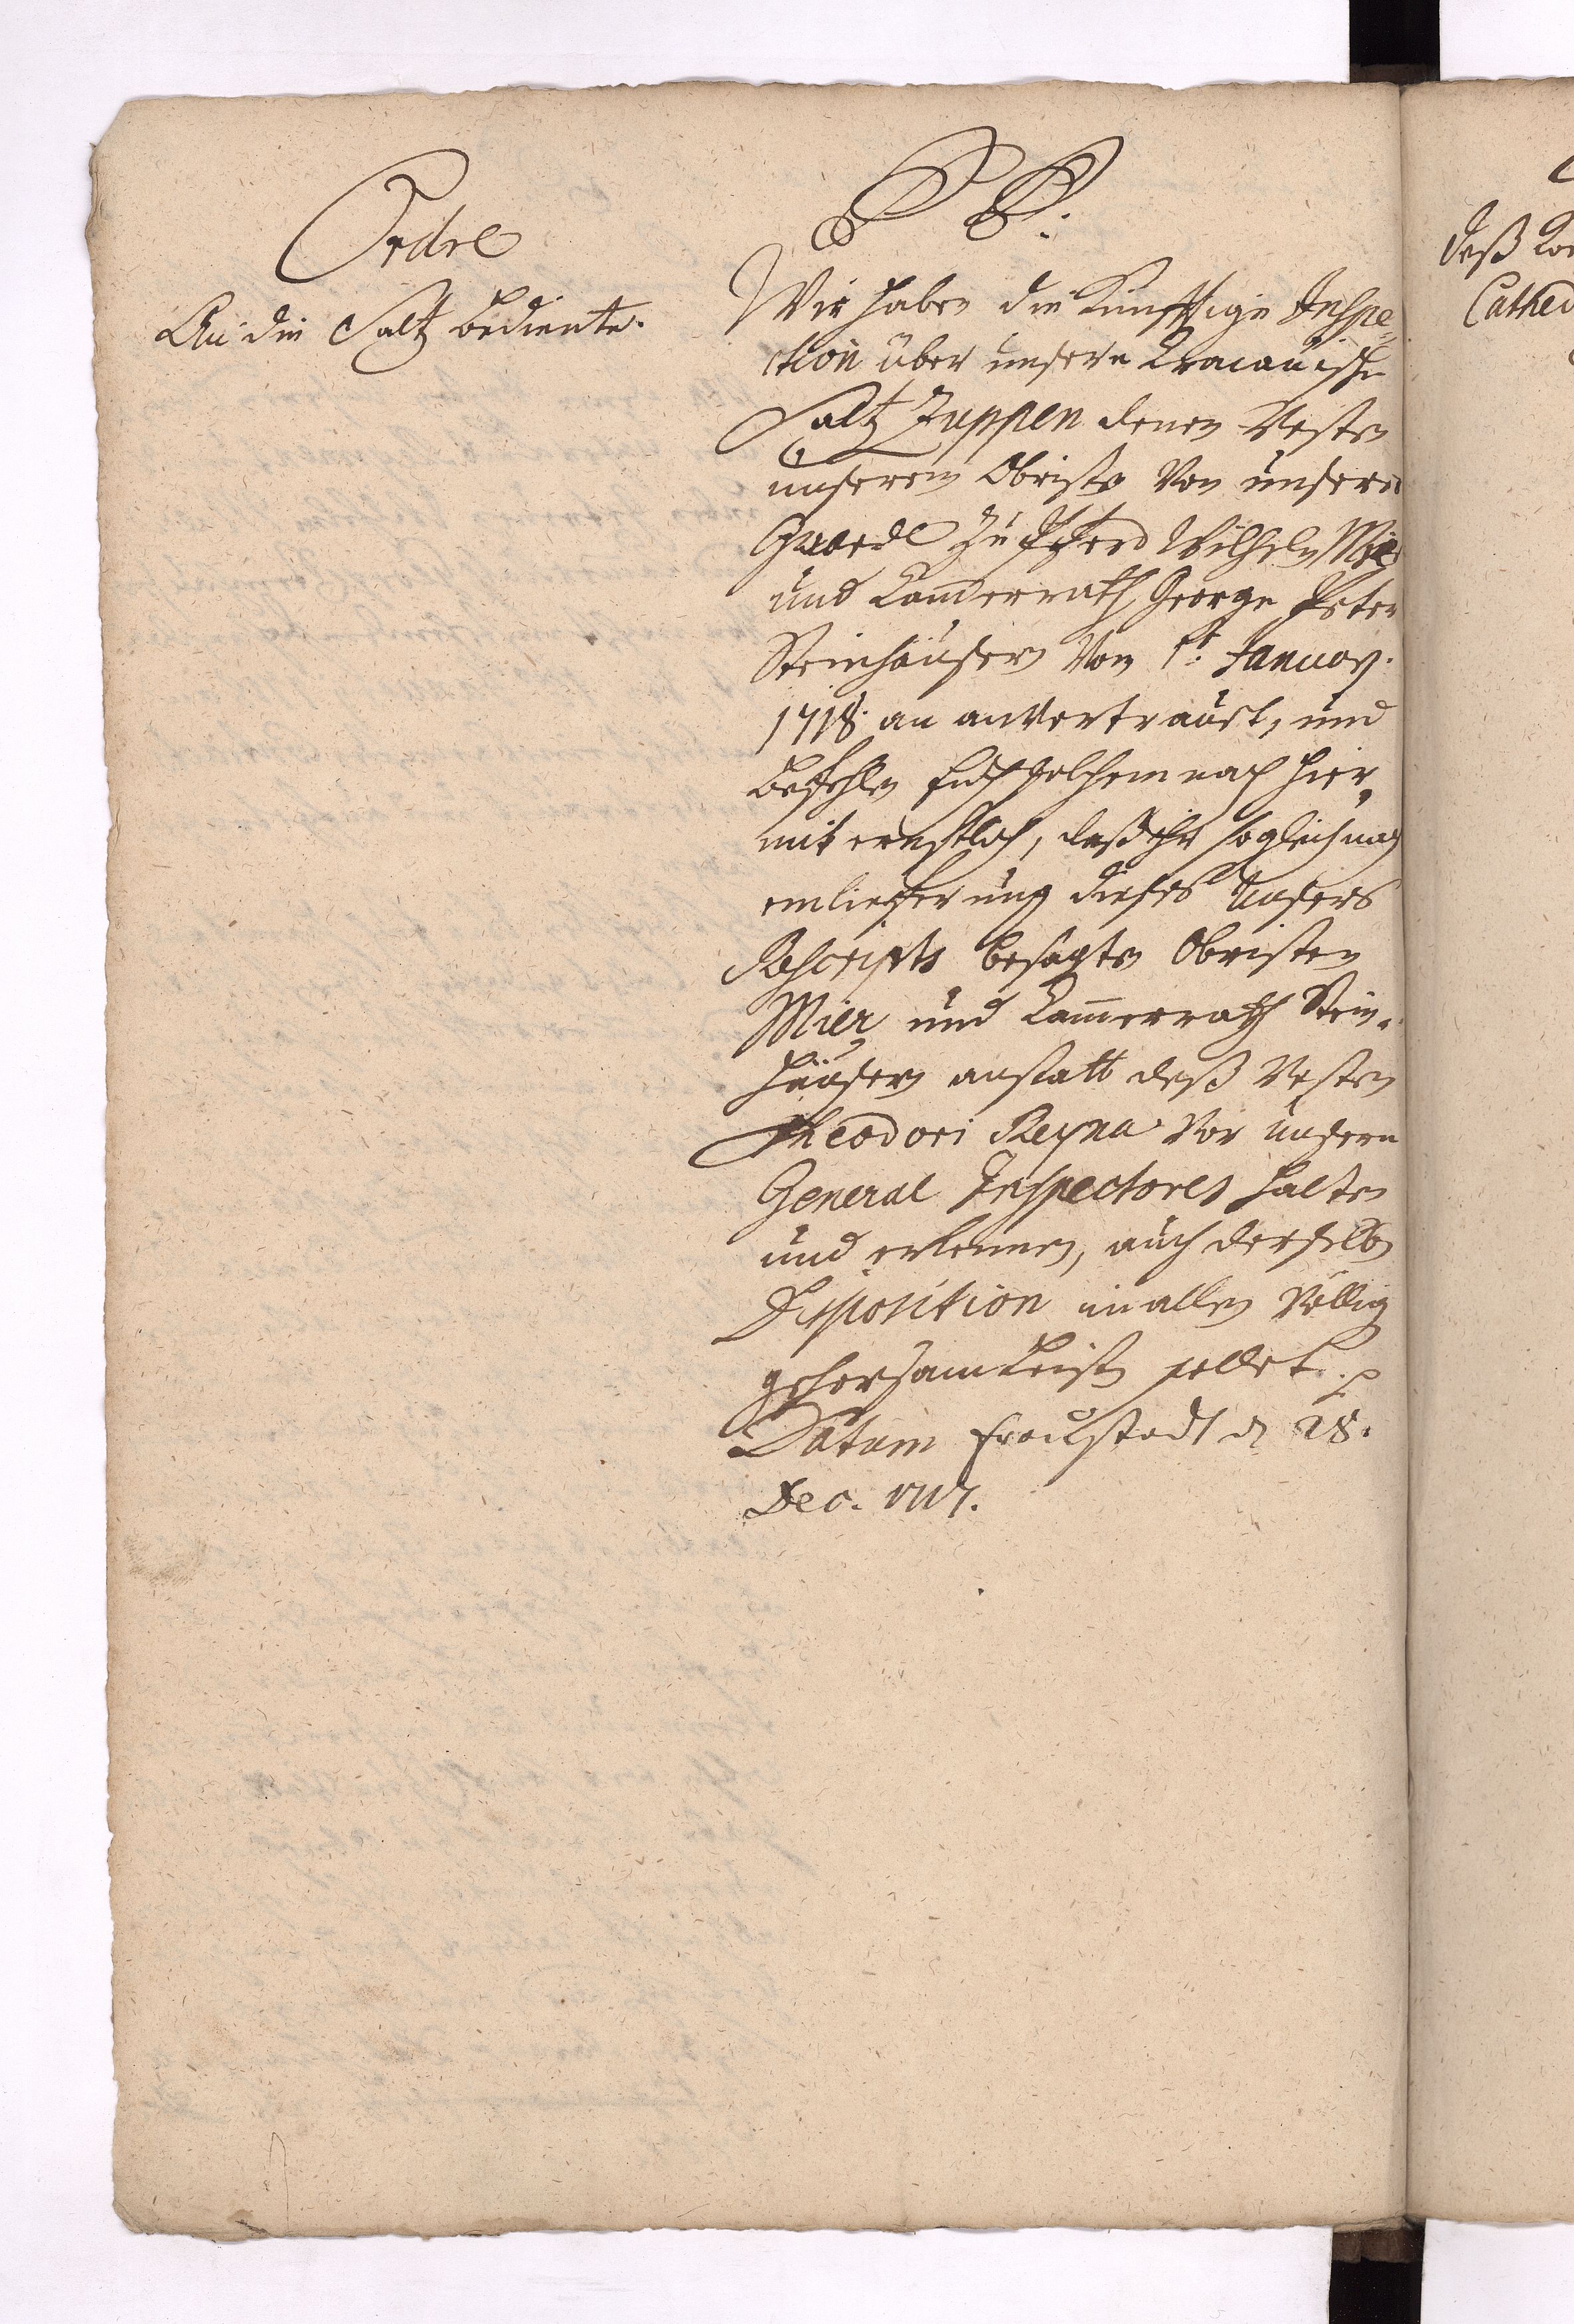 Ordre
An die Saltz bediente.
P P.
Wir haben die Künfftige Inspe=
ction über unsere Cracauische
Saltz Zuppen denen Vesten
unserem Obristen Von unserer
Guarde Zu Pferd Wilhelm Mier
und Cammerrath George Peter
Steinhäusern Vom 1t. Januar.
1718. an anvertrauet, und
befehlen Euch solchemnach hier=
mit ernstlich, daß ihr sogleich nach
einlieferung dieses Unsers
Rescripts besagten Obristen
Mier und Cammerrath Stein=
häusern anstatt deß Vesten
Theodori Reyna Vor Unsere
General Inspectores halten
und erkennen, auch derselben
Disposition in allen Völlig
gehorsam Leisten sollet. p
Datum Fraustadt d. 28.
Dec. 1717.
deß
Cathed